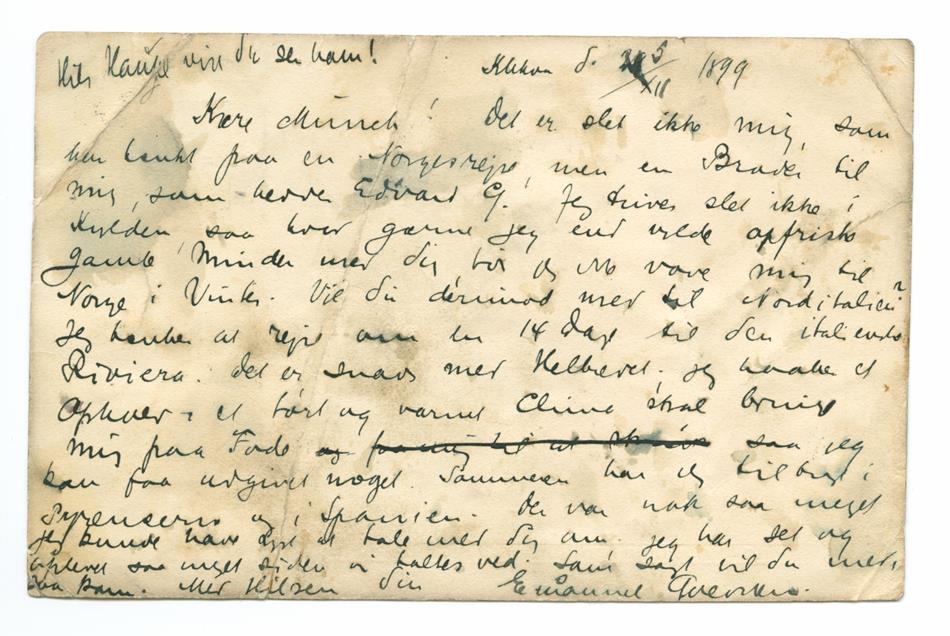 Hils Hauge hvis du ser ham!
d. 5/XII 1899
Kære Munch! Det er slet ikke mig, som
har tænkt paa en Norgesrejse, men en Broder til
mig, som hedder Edvard G. Jeg trives slet ikke i
Kulden, saa hvor gærne jeg end vilde opfriske
gamle Minder med dig, tør jeg ikke vove mig til
Norge i Vinter. Vil du derimod med til Norditalien?
Jeg tænker at rejse om en 14 Dage til den italienske
Riviera. Det er snavs med Helbredet; jeg haaber et
Ophold i et tørt og varmt Clima skal bringe
mig paa Fode og faa mig til at skrive saa jeg
kan faa udgivet noget. Sommeren har jeg tilbragt i
Pyrenæerne og i Spanien. Der var nok saa meget
jeg kunde have Lyst at tale med dig om. Jeg har set og
oplevet saa meget siden vi taltes ved. Som sagt vil du med,
saa kom. Med Hilsen din Emanuel